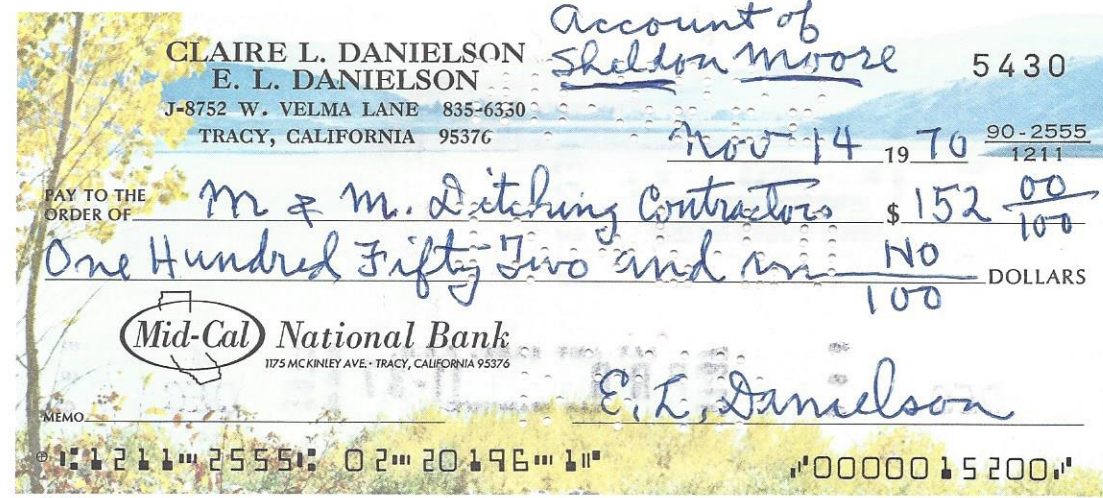 Account of
CLAIRE L. DANIELSON
Sheldon Moore
5430
E. L. DANIELSON
J-8752 W. VELMA LANE 835-6330
TRACY, CALIFORNIA 95376
Nov 14 19 70
90-2555
1211
PAY TO THE
ORDER OF M & M. Ditching Contractors $ 152 00/100
One Hundred Fifty Two and no/100 DOLLARS
Mid-Cal National Bank
1175 MCKINLEY AVE. - TRACY, CALIFORNIA 95376
E. L. Danielson
MEMO
⑆1211⑉2555⑆ 02⑉20196⑉1⑈ ⑈0000015200⑈